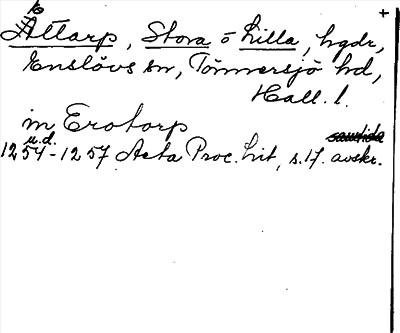 +
Attarp, Stora o Lilla, hgdr,
Enslövs sn, Tönnersjö hd,
Hall. l.
in Erotorp
u.d.
1254-1257 Acta Proc. Lit, s.17. avskr.